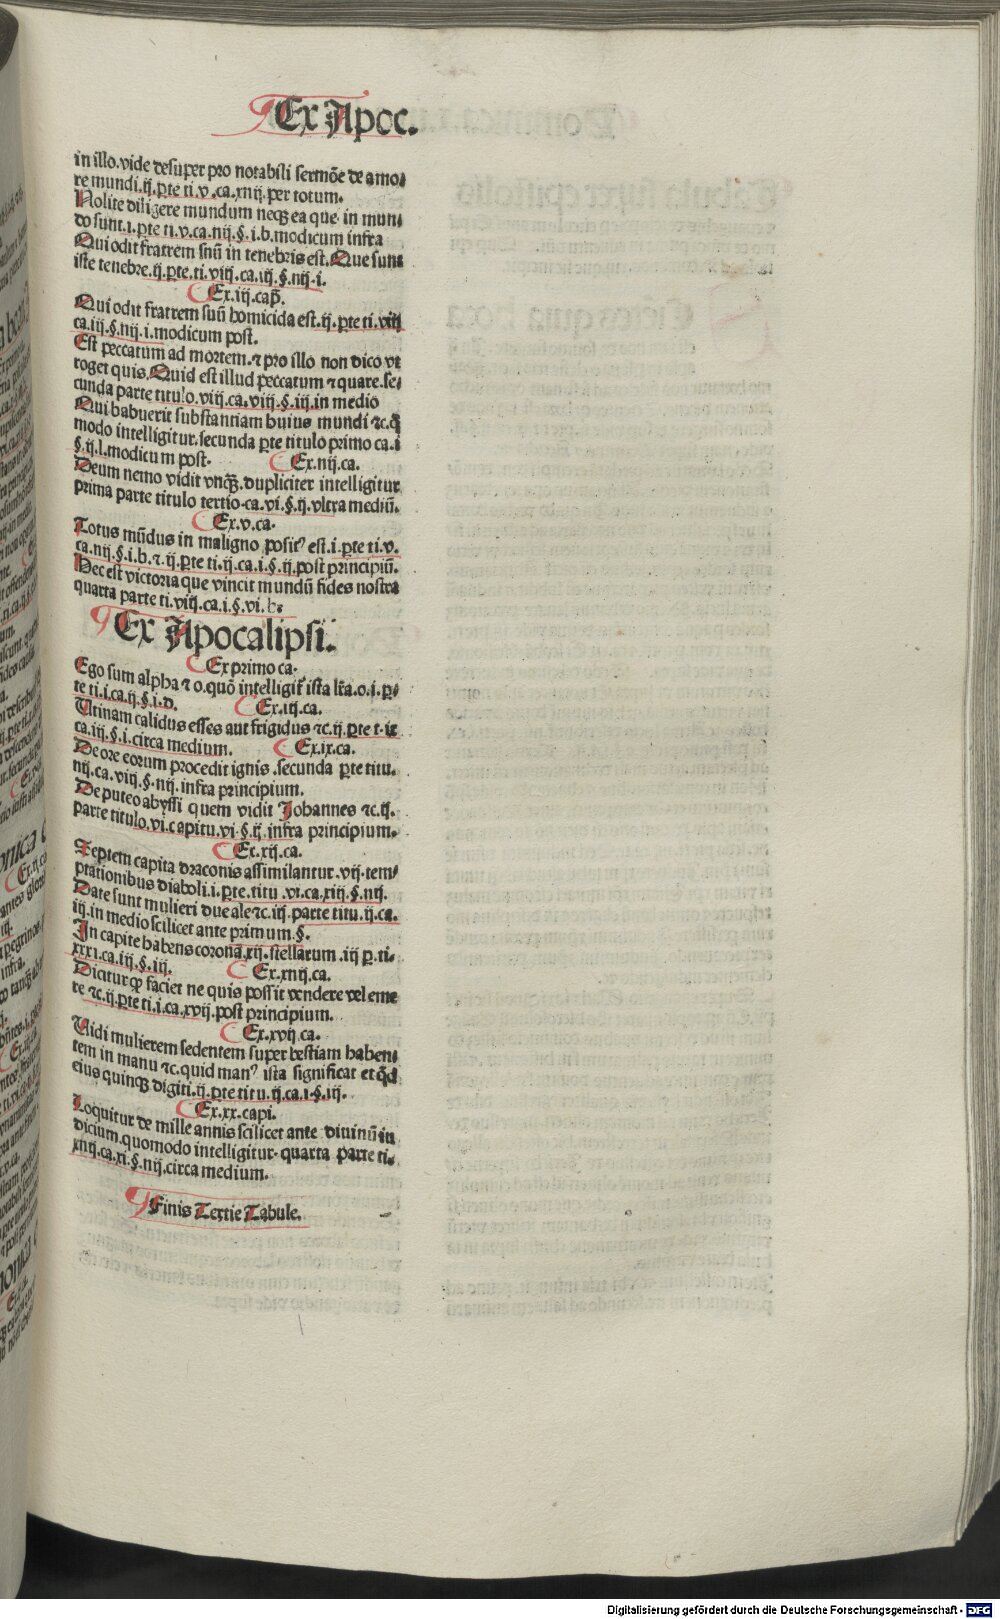 Ex Apoc.
in illo. vide desuper pro notabili sermõe de amo⸗
re mundi. ij. ꝑte ti. v. ca. xiiij. per totum.
Nolite diligere mundum neqꝫ ea que in mun⸗
do sunt. i. ꝑte ti. v. ca. iiij. §. i. b. modicum infra
Qui odit fratrem suũ in tenebris est. Que sunt
iste tenebre. ij. ꝑte. ti. viij. ca. iij. §. iiij. i.
Ex. iij. cap̃.
Qui odit fratrem suũ homicida est. ij. ꝑte ti. viij
ca. iij. §. iiij. i. modicum post.
Est peccatum ad mortem. ⁊ pro illo non dico vt
roget quis. Quid est illud peccatum ⁊ quare. se⸗
cunda parte titulo. viij. ca. viij. §. iij. in medio
Qui habuerit substantiam huius mundi ⁊c. q̃
modo intelligitur. secunda ꝑte titulo primo ca. i
§. ij. l. modicum post.
Ex. iiij. ca.
Deum nemo vidit vnqꝫ. dupliciter intelligitur
prima parte titulo tertio. ca. vi. §. ij. vltra mediũ.
Ex. v. ca.
Totus mũdus in maligno positꝰ est. i. ꝑte ti. v.
ca. iiij. §. i. b. ⁊. ij. ꝑte ti. ij. ca. i. §. ij. post principiũ.
Hec est victoria que vincit mundũ fides nostra
quarta parte ti. viij. ca. i. §. vi. b.
Ex Apocalipsi.
Ex primo ca.
Ego sum alpha ⁊ o. quõ intelligit̃ ista lr̃a. o. i. ꝑ⸗
te ti. i. ca. ij. §. i. d.
Ex. iij. ca.
Utinam calidus esses aut frigidus ⁊c. ij. ꝑte t. ix
ca. iij. §. i. circa medium.
Ex. ix. ca.
De ore eorum procedit ignis. secunda ꝑte titu.
iiij. ca. viij. §. iiij. infra principium.
De puteo abyssi quem vidit Johannes ⁊c. ij.
parte titulo. vi. capitu. vi. §. ij. infra principium.
Ex. xij. ca.
Septem capita draconis assimilantur. vij. tem⸗
ptationibus diaboli. i. ꝑte. titu. vi. ca. xiij. §. iiij.
Date sunt mulieri due ale ⁊c. iij. parte titu. ij. ca.
iij. in medio scilicet ante primum. §.
In capite habens coronã. xij. stellarum. iij ꝑ. ti.
xxxi. ca. iij. §. iij.
Ex. xiiij. ca.
Dicitur ꝙ faciet ne quis possit vendere vel eme
re ⁊c. ij. ꝑte ti. i. ca. xvij. post principium.
Ex. xvij. ca.
Vidi mulierem sedentem super bestiam haben⸗
tem in manu ⁊c. quid manꝰ ista significat et qd̃
eius quinqꝫ digiti. ij. ꝑte titu. ij. ca. i. §. iij.
Ex. xx. capi.
Loquitur de mille annis scilicet ante diuinũ iu
dicium. quomodo intelligitur. quarta parte ti.
xiiij. ca. xi. §. iiij. circa medium.
Finis Tertie Tabule.
Digitalisierung gefördert durch die Deutsche Forschungsgemeinschaft - DFG